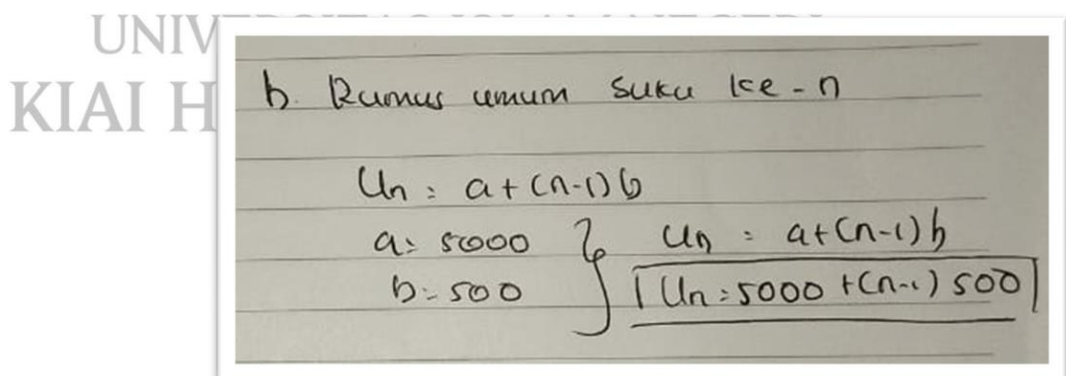 UNIV
KIAI H
b. Rumus umum suku ke-n
Un = a+(n-1)b
a = 5000
b = 500
Un = a+(n-1)b
Un = 5000 +(n-1) 500